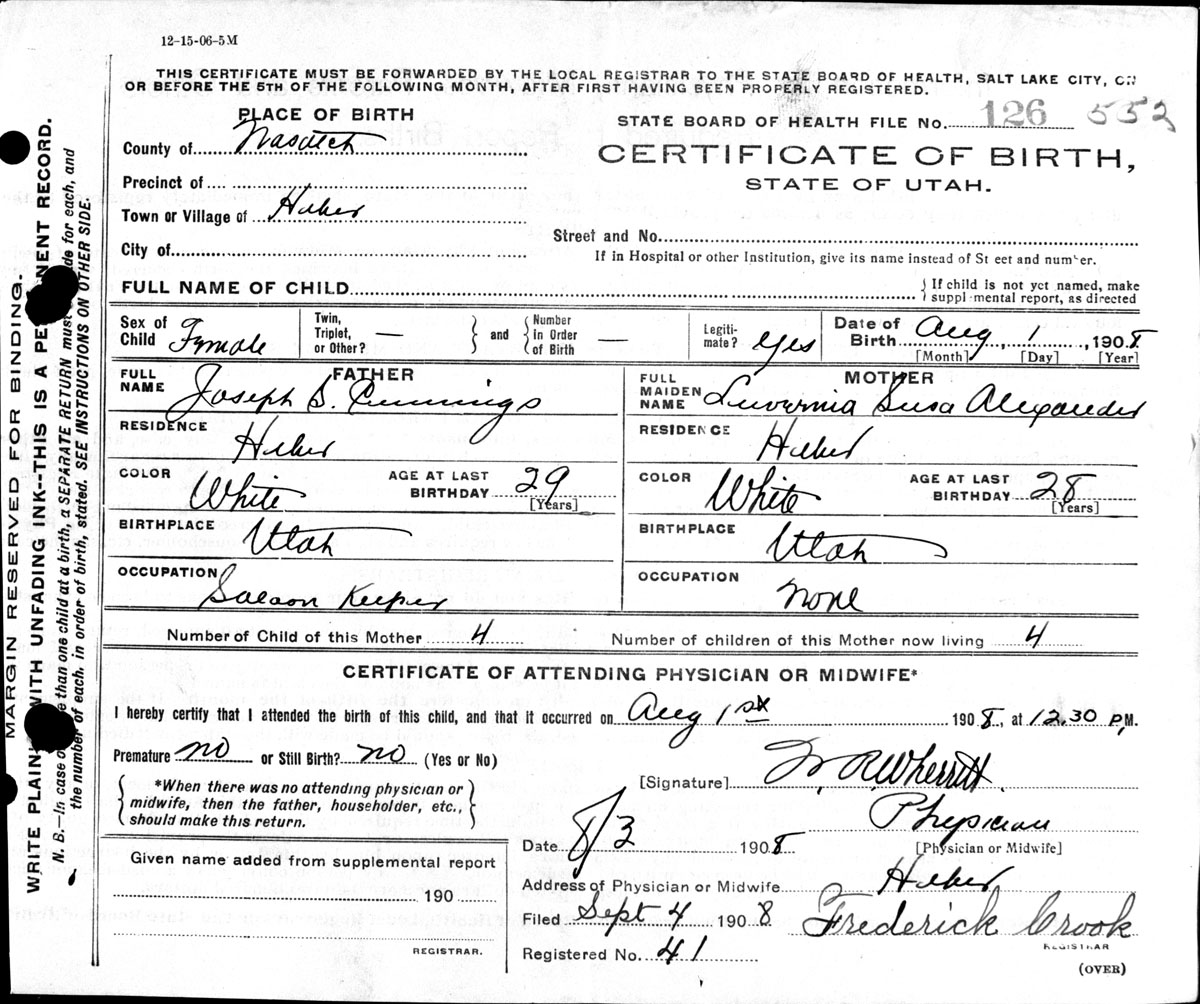 12-15-06-5M
THIS CERTIFICATE MUST BE FORWARDED BY THE LOCAL REGISTRAR TO THE STATE BOARD OF HEALTH, SALT LAKE CITY, ON
OR BEFORE THE 5TH OF THE FOLLOWING MONTH, AFTER FIRST HAVING BEEN PROPERLY REGISTERED.
PLACE OF BIRTH
STATE BOARD OF HEALTH FILE No. 126 552
County of Wasatch
CERTIFICATE OF BIRTH,
STATE OF UTAH.
Precinct of
Town or Village of Heber
Street and No.
City of
If in Hospital or other Institution, give its name instead of St eet and number.
FULL NAME OF CHILD
{ If child is not yet named, make
suppl mental report, as directed
Sex of Child Female
Twin, Triplet, or Other? —
} and { Number in Order of Birth —
Legiti- mate? Yes
Date of Birth Aug 1, 1908
[Month] [Day] [Year]
FATHER
FULL NAME Joseph S. Cummings
RESIDENCE Heber
COLOR White AGE AT LAST BIRTHDAY 29 [Years]
BIRTHPLACE Utah
OCCUPATION Saloon Keeper
MOTHER
FULL MAIDEN NAME Luvernia Susa Alexander
RESIDENCE Heber
COLOR White AGE AT LAST BIRTHDAY 28 [Years]
BIRTHPLACE Utah
OCCUPATION None
Number of Child of this Mother 4 Number of children of this Mother now living 4
CERTIFICATE OF ATTENDING PHYSICIAN OR MIDWIFE*
I hereby certify that I attended the birth of this child, and that it occurred on Aug 1st 1908, at 12.30 P.M.
Premature no or Still Birth? no (Yes or No)
{ *When there was no attending physician or
midwife, then the father, householder, etc.,
should make this return. }
[Signature] W. R. Wherritt
Physician
[Physician or Midwife]
Date 8/3 1908
Address of Physician or Midwife Heber
Filed Sept 4 1908 Frederick Crook
REGISTRAR
Registered No. 41
(OVER)
Given name added from supplemental report
190
REGISTRAR.
MARGIN RESERVED FOR BINDING.
WRITE PLAIN WITH UNFADING INK--THIS IS A PE NENT RECORD.
N. B.—In case o e than one child at a birth, a SEPARATE RETURN must de for each, and
the number of each, in order of birth, stated. SEE INSTRUCTIONS ON OTHER SIDE.